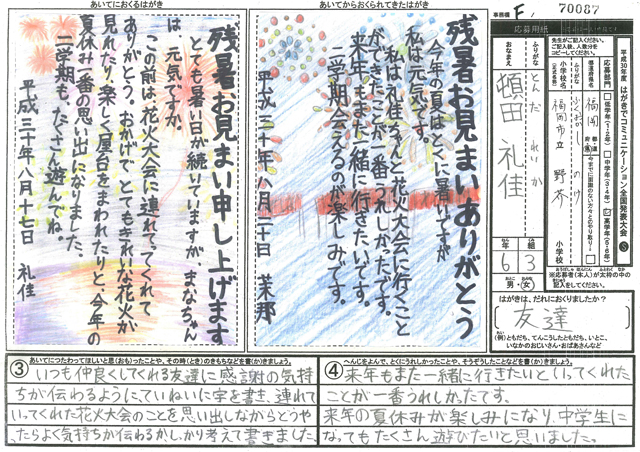 あいてにおくるはがき
残暑お見まい申し上げます
とても暑い日が続いていますが、まなちゃん
は元気ですか。
この前は花火大会に連れていってくれて
ありがとう。おかげで、とてもきれいな花火が
見れたり、楽しく屋台をまわれたりと、今年の
夏休み一番の思い出になりました。
二学期も、たくさん遊んでね。
平成三十年八月十七日 礼佳
あいてからおくられてきたはがき
残暑お見まいありがとう
今年の夏はとくに暑いですが
私は元気です。
私は礼佳ちゃんと花火大会に行くこと
ができたことが一番うれしかったです。
来年もまた一緒に行きたいです。
二学期会えるのが楽しみです。
平成三十年八月二十日 茉邦
事務欄 F, 70087
応募用紙
先生がご記入ください。
ご記入後、人数分を
コピーしてください。
平成30年度 はがきでコミュニケーション全国発表大会
応募部門
低学年(1・2年)
中学年(3・4年)
高学年(5・6年)
ふりがな とんだ れいか
おなまえ 頓田 礼佳
都道府県名 福岡
小学校名 ふくおか のけ
(正式名称) 福岡市立 野芥 小学校
年 6 組 3
男・女
※応募者(本人)が太枠の中の
記入をしてください。
はがきは、だれにおくりましたか?
友達
(例)ともだち、てんこうしたともだち、いとこ、
いなかのおじいさん・おばあさんなど
あいてにつたわってほしいと思(おも)ったことや、その時(とき)のきもちなどを書(か)きましょう。
③ いつも仲良くしてくれる友達に感謝の気持
ちが伝わるようにていねいに字を書き、連れて
いってくれた花火大会のことを思い出しながらどうや
ったらよく気持ちが伝わるかしっかり考えて書きました。
へんじをよんで、とくにうれしかったことや、そうぞうしたことなどを書(か)きましょう。
④ 来年もまた一緒に行きたいといってくれた
ことが一番うれしかったです。
来年の夏休みが楽しみになり、中学生に
なってもたくさん遊びたいと思いました。